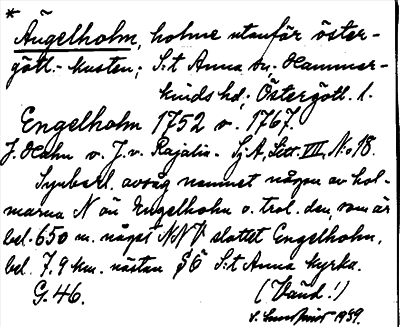 *
Ängelholm, holme utanför öster-
götl.-kusten; S:t Anna sn, Hammar-
kinds hd; Östergötl. l.
Engelholm 1752 o. 1767.
J. Hahn o. J. v. Rajalin. Sj.A, Litt. VII, No 18.
Synberl. avsåg namnet någon av hol-
marna N ön Engelholm o. trol. den, som är
bel. 650 m. näst NNV slottet Engelholm,
bel. 7.9 km. nästan SÖ S:t Anna kyrka.
G. 46.
(Vänd!)
1939.